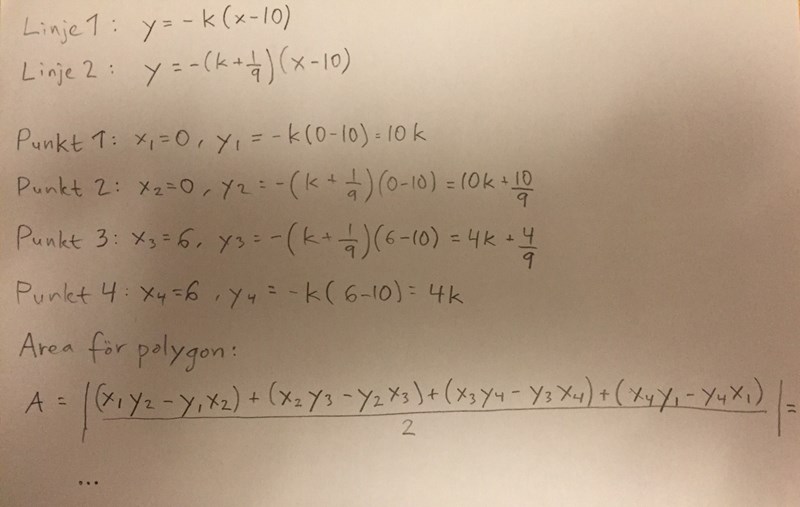 Linje 1: y = -k(x-10)
Linje 2: y = -(k+1/9)(x-10)
Punkt 1: x₁=0, y₁ = -k(0-10) = 10k
Punkt 2: x₂=0, y₂ = -(k+1/9)(0-10) = 10k+10/9
Punkt 3: x₃=6, y₃ = -(k+1/9)(6-10) = 4k+4/9
Punkt 4: x₄=6, y₄ = -k(6-10) = 4k
Area för polygon:
A = |((x₁y₂ - y₁x₂) + (x₂y₃ - y₂x₃) + (x₃y₄ - y₃x₄) + (x₄y₁ - y₄x₁))/2| =
...